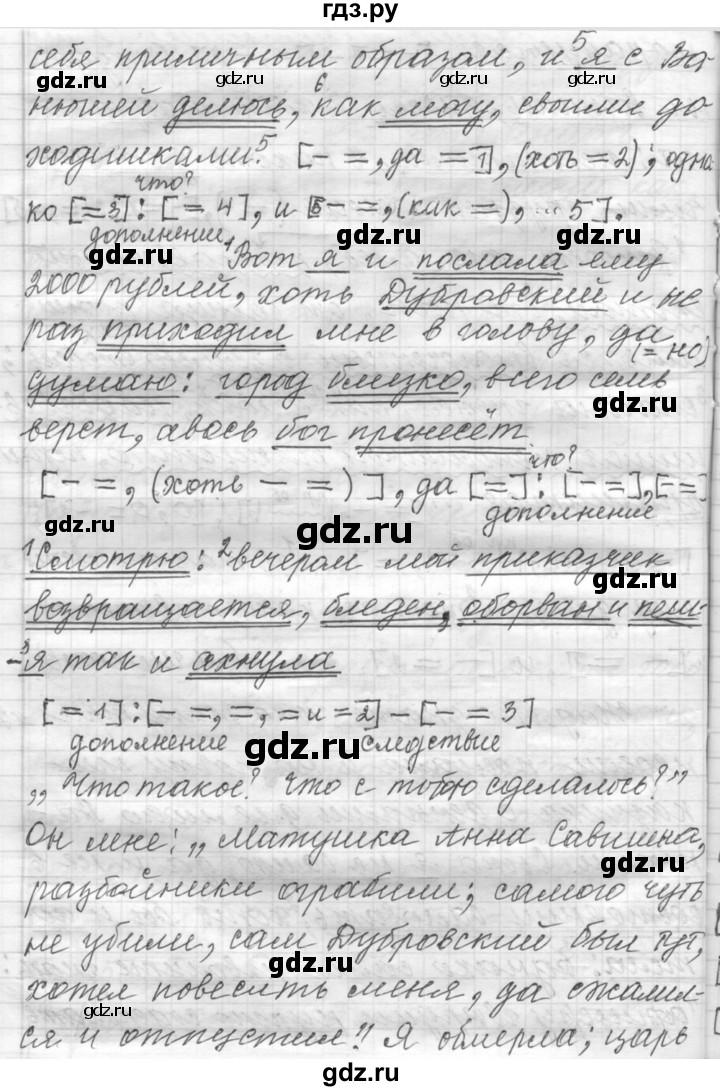 гдз.ру
себя приличным образом, и ⁵я с Ва-
нюшей делюсь, ⁶как могу, своими до-
ходишками⁵. [– =, да = 1], (хоть = 2); одна-
что?
ко [= 3] : [– = 4], и [5 – =, (как =), ... 5].
дополнение
¹Вот я и послала ему
2000 рублей, хоть Дубровский и не
раз приходил мне в голову, да
(= но)
думаю: город близко, всего семь
верст, авось бог пронесёт.
что?
[– =, (хоть – =)], да [=] : [– =], [– =]
дополнение
¹Смотрю: ²вечером мой приказчик
возвращается, бледен, оборван и пеш-
³я так и ахнула
[= 1] : [– =, =, = и = 2] – [– = 3]
дополнение следствие
„Что такое? Что с тобою сделалось?"
Он мне: „Матушка Анна Савишна,
разбойники ограбили; самого чуть
не убили, сам Дубровский был тут,
хотел повесить меня, да сжалил-
ся и отпустил". Я обмерла; царь